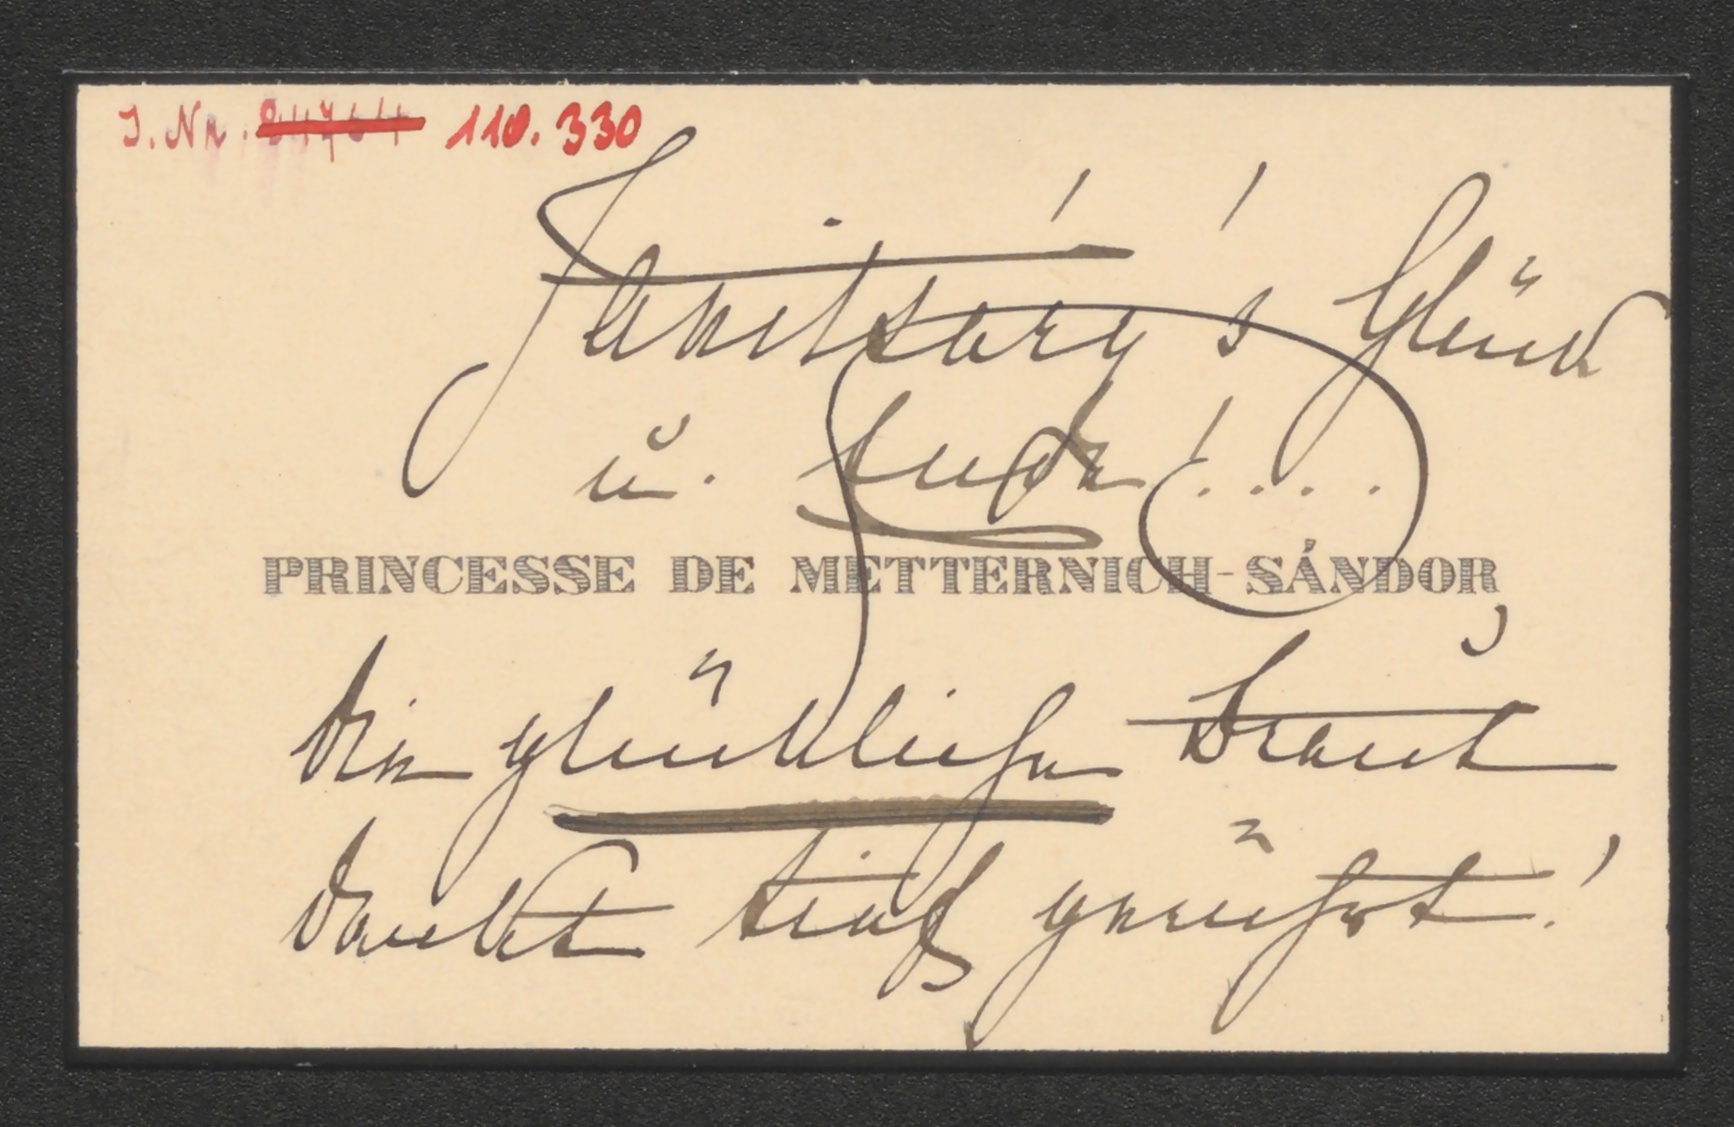 I. Nr. 110.330
Janitsáry's Glück
u. Ende! ....
PRINCESSE DE METTERNICH-SÁNDOR
Die glückliche Braut
dankt tief gerührt!